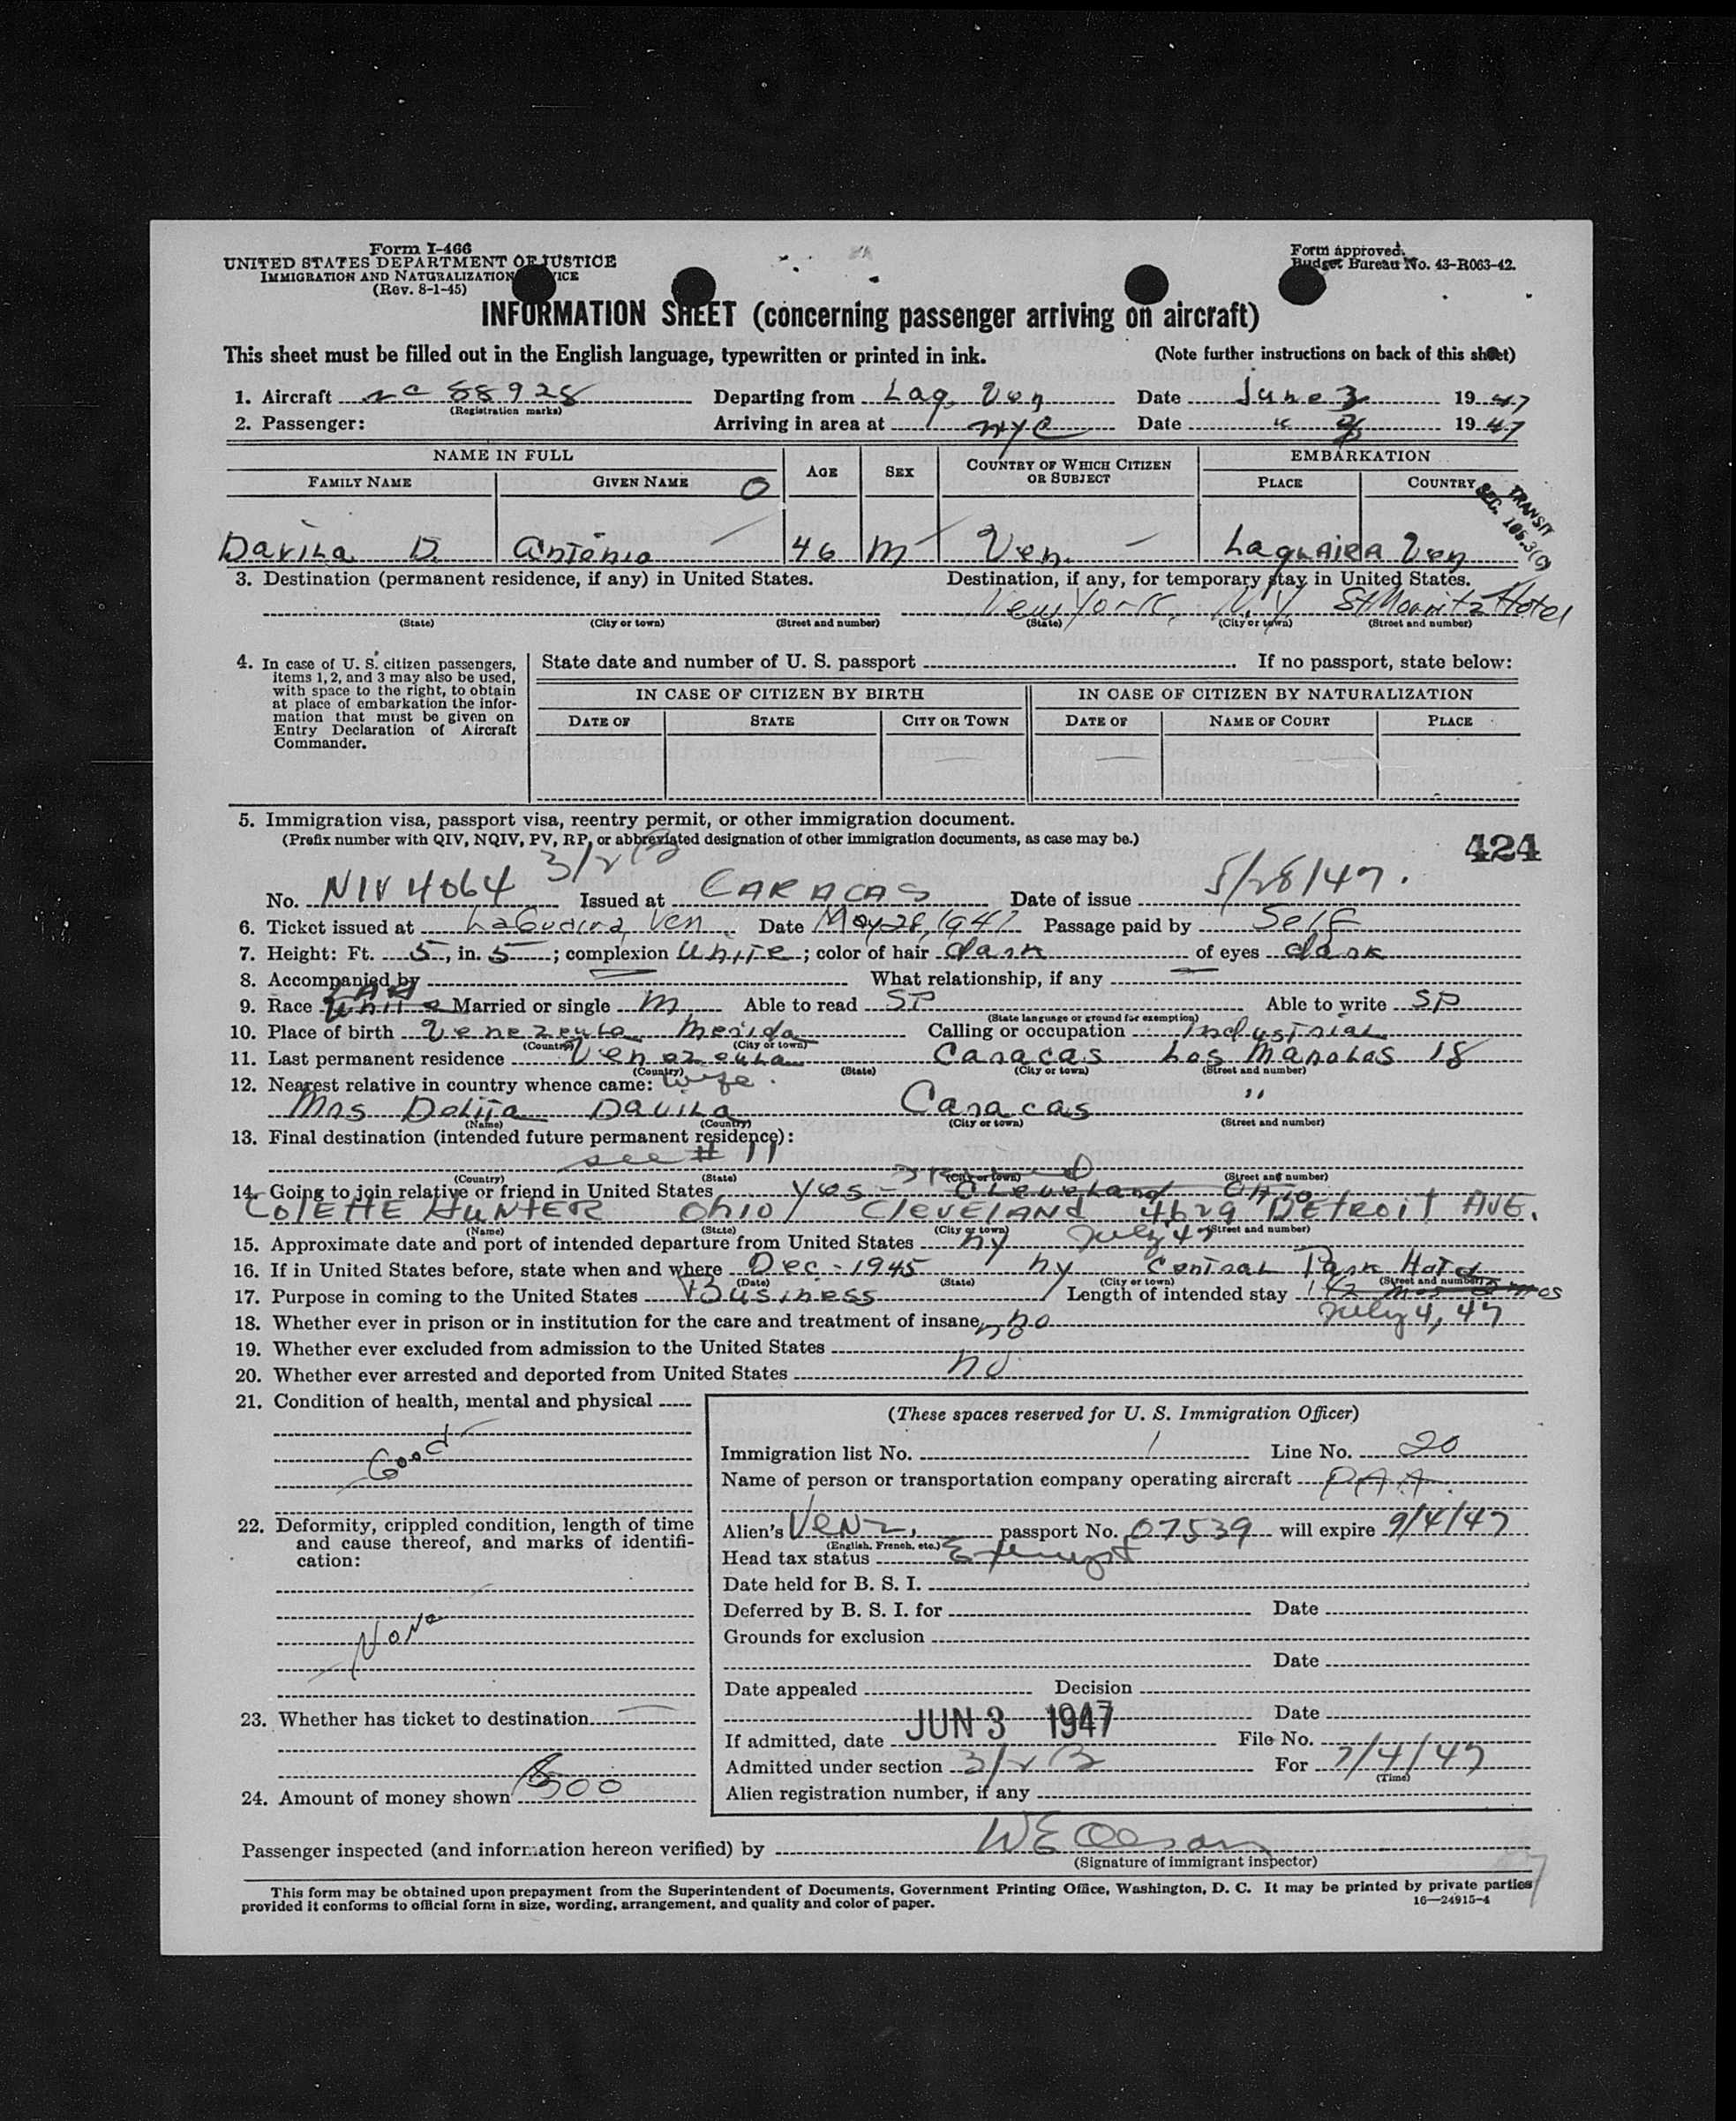 Form I-466
UNITED STATES DEPARTMENT OF JUSTICE
IMMIGRATION AND NATURALIZATION SERVICE
(Rev. 8-1-45)
Form approved.
Budget Bureau No. 43-R063-42.
INFORMATION SHEET (concerning passenger arriving on aircraft)
This sheet must be filled out in the English language, typewritten or printed in ink. (Note further instructions on back of this sheet)
1. Aircraft NC 88928 Departing from Lag. Ven Date June 3 1947
(Registration marks)
2. Passenger: Arriving in area at NYC Date " 3 1947
NAME IN FULL AGE SEX COUNTRY OF WHICH CITIZEN OR SUBJECT EMBARKATION
FAMILY NAME GIVEN NAME PLACE COUNTRY
TRANSIT
SEC.
Davila D. Antonio 46 M Ven. Laguaira Ven
3. Destination (permanent residence, if any) in United States. Destination, if any, for temporary stay in United States.
New York N.Y St Moritz Hotel
(State) (City or town) (Street and number) (State) (City or town) (Street and number)
4. In case of U. S. citizen passengers, items 1, 2, and 3 may also be used, with space to the right, to obtain at place of embarkation the information that must be given on Entry Declaration of Aircraft Commander.
State date and number of U. S. passport If no passport, state below:
IN CASE OF CITIZEN BY BIRTH IN CASE OF CITIZEN BY NATURALIZATION
DATE OF STATE CITY OR TOWN DATE OF NAME OF COURT PLACE
5. Immigration visa, passport visa, reentry permit, or other immigration document.
(Prefix number with QIV, NQIV, PV, RP, or abbreviated designation of other immigration documents, as case may be.)
424
3/2 B
No. NIV 4064 Issued at CARACAS Date of issue 5/28/47.
6. Ticket issued at LaGuaira Ven Date May 28, 1947 Passage paid by Self
7. Height: Ft. 5, in. 5; complexion White; color of hair dark of eyes dark
8. Accompanied by What relationship, if any
9. Race White Married or single M Able to read SP Able to write SP
(State language or ground for exemption)
10. Place of birth Venezuela Merida Calling or occupation Industrial
(Country) (City or town)
11. Last permanent residence Venezuela Caracas Los Manolas 18
(Country) (State) (City or town) (Street and number)
12. Nearest relative in country whence came: Wife.
Mrs Delia Davila Caracas "
(Name) (Country) (City or town) (Street and number)
13. Final destination (intended future permanent residence):
see # 11
(Country) (State) (City or town) (Street and number)
14. Going to join relative or friend in United States Yes - Cleveland Ohio
COLETTE HUNTER Ohio CLEVELAND 4629 DETROIT AVE.
(Name) (State) (City or town) (Street and number)
15. Approximate date and port of intended departure from United States NY July 47
16. If in United States before, state when and where Dec - 1945 NY Central Park Hotel
(Date) (State) (City or town) (Street and number)
17. Purpose in coming to the United States Business Length of intended stay
July 4, 47
18. Whether ever in prison or in institution for the care and treatment of insane no
19. Whether ever excluded from admission to the United States
20. Whether ever arrested and deported from United States no
21. Condition of health, mental and physical
Good
22. Deformity, crippled condition, length of time and cause thereof, and marks of identification:
None
23. Whether has ticket to destination
24. Amount of money shown $500
(These spaces reserved for U. S. Immigration Officer)
Immigration list No. 1 Line No. 20
Name of person or transportation company operating aircraft P.A.A.
Alien's Venz. passport No. 07539 will expire 9/4/47
(English, French, etc.)
Head tax status Exempt
Date held for B. S. I.
Deferred by B. S. I. for Date
Grounds for exclusion
Date
Date appealed Decision
Date
If admitted, date JUN 3 1947 File No.
Admitted under section 3/2 B For 7/4/47
(Time)
Alien registration number, if any
Passenger inspected (and information hereon verified) by
(Signature of immigrant inspector)
This form may be obtained upon prepayment from the Superintendent of Documents, Government Printing Office, Washington, D. C. It may be printed by private parties
provided it conforms to official form in size, wording, arrangement, and quality and color of paper.
16—24915-4